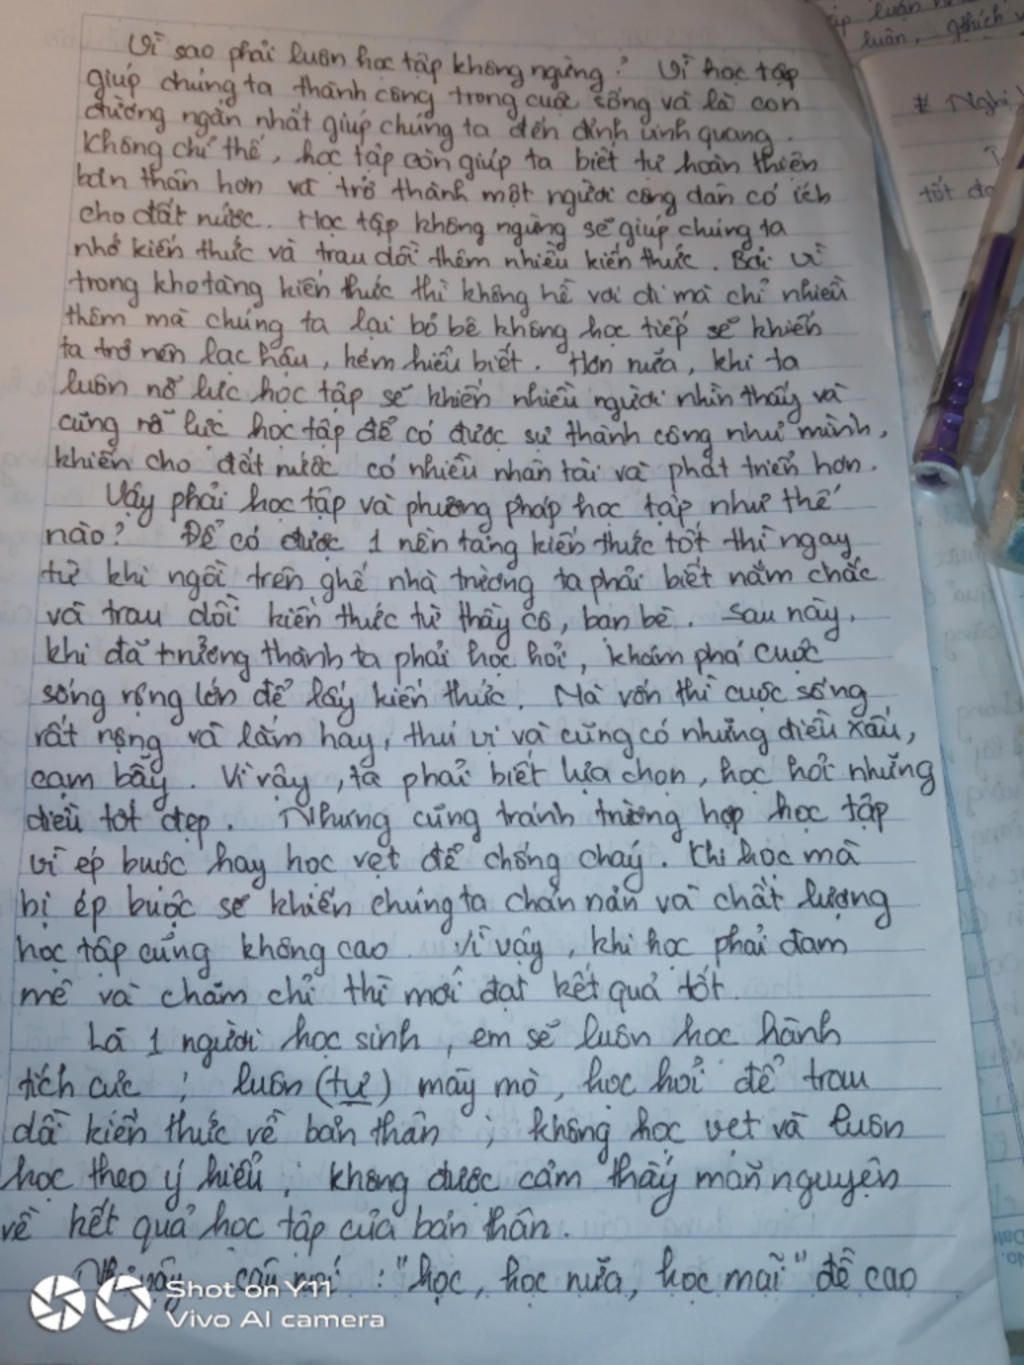 Vì sao phải luôn học tập không ngừng? Vì học tập
giúp chúng ta thành công trong cuộc sống và là con
đường ngắn nhất giúp chúng ta đến đỉnh vinh quang.
Không chỉ thế, học tập còn giúp ta biết tự hoàn thiện
bản thân hơn và trở thành một người công dân có ích
cho đất nước. Học tập không ngừng sẽ giúp chúng ta
nhớ kiến thức và trau dồi thêm nhiều kiến thức. Bởi vì
trong kho tàng kiến thức thì không hề vơi đi mà chỉ nhiều
thêm mà chúng ta lại bỏ bê không học tiếp sẽ khiến
ta trở nên lạc hậu, kém hiểu biết. Hơn nữa, khi ta
luôn nỗ lực học tập sẽ khiến nhiều người nhìn thấy và
cũng nỗ lực học tập để có được sự thành công như mình,
khiến cho đất nước có nhiều nhân tài và phát triển hơn.
Vậy phải học tập và phương pháp học tập như thế
nào? Để có được 1 nền tảng kiến thức tốt thì ngay
từ khi ngồi trên ghế nhà trường ta phải biết nắm chắc
và trau dồi kiến thức từ thầy cô, bạn bè. Sau này,
khi đã trưởng thành ta phải học hỏi, khám phá cuộc
sống rộng lớn để lấy kiến thức. Mà vốn thì cuộc sống
rất rộng và lắm hay, thú vị và cũng có những điều xấu,
cạm bẫy. Vì vậy, ta phải biết lựa chọn, học hỏi những
điều tốt đẹp. Nhưng cũng tránh trường hợp học tập
vì ép buộc hay học vẹt để chống cháy. Khi học mà
bị ép buộc sẽ khiến chúng ta chán nản và chất lượng
học tập cũng không cao. Vì vậy, khi học phải đam
mê và chăm chỉ thì mới đạt kết quả tốt.
Là 1 người học sinh, em sẽ luôn học hành
tích cực; luôn (tự) mày mò, học hỏi để trau
dồi kiến thức về bản thân; không học vẹt và luôn
học theo ý hiểu; không được cảm thấy mãn nguyện
về kết quả học tập của bản thân.
vậy câu nói: "học, học nữa, học mãi" đề cao
Shot on Y11
Vivo AI camera
luận
# Nghị